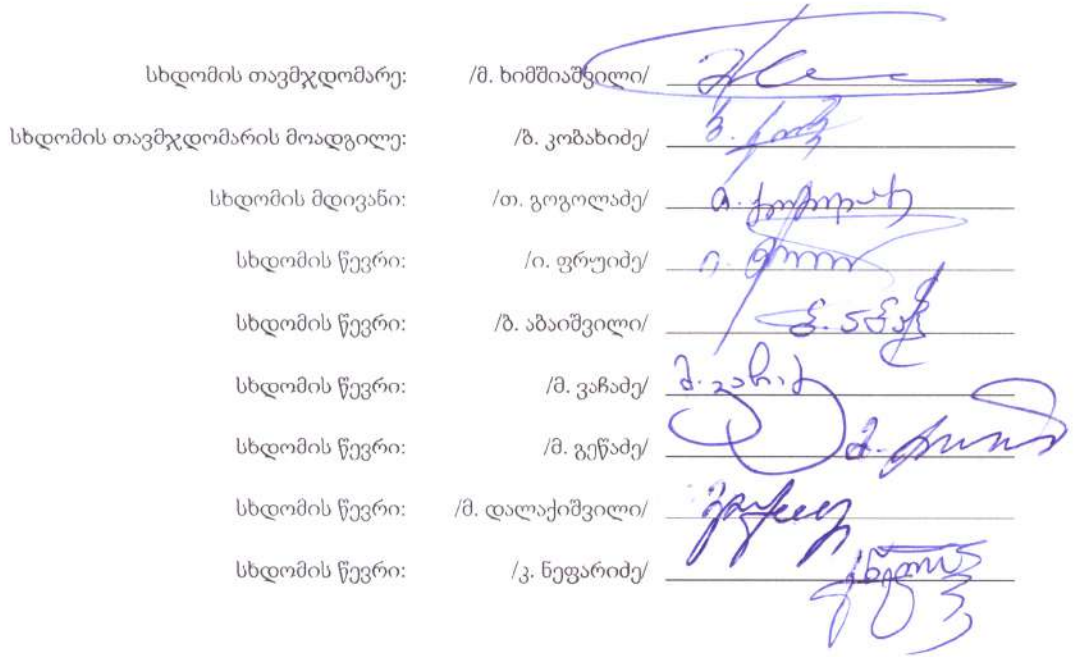 სხდომის თავმჯდომარე: /მ. ხიმშიაშვილი/
სხდომის თავმჯდომარის მოადგილე: /ბ. კობახიძე/ ბ. კობ
სხდომის მდივანი: /თ. გოგოლაძე/ თ. გოგოლაძე
სხდომის წევრი: /ი. ფრუიძე/ ი.
სხდომის წევრი: /ბ. აბაიშვილი/ ბ.
სხდომის წევრი: /მ. ვაჩაძე/ მ. ვაჩაძე
სხდომის წევრი: /მ. გეწაძე/ მ.
სხდომის წევრი: /მ. დალაქიშვილი/
სხდომის წევრი: /კ. ნეფარიძე/